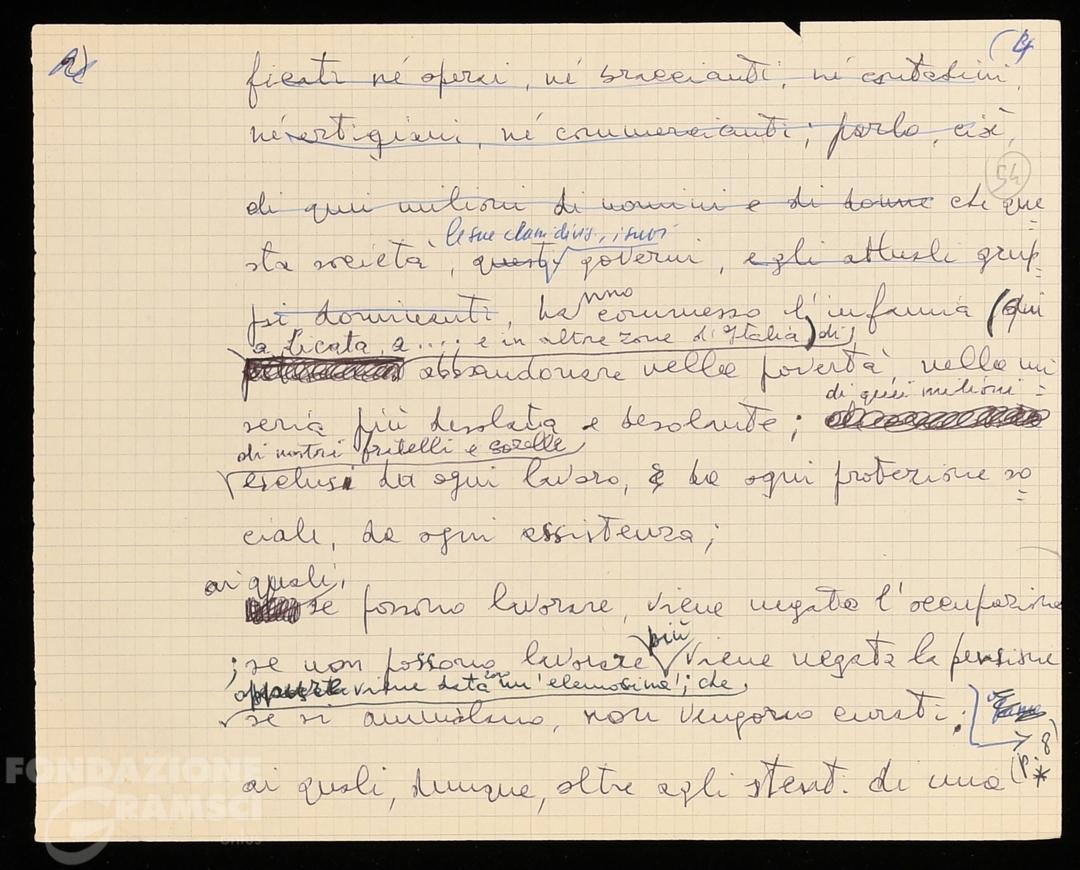 (4
ficati né operai, né braccianti, né contadini,
né artigiani, né commercianti; parlo, cioè,
54
di quei milioni di uomini e di donne che que=
le sue classi divis., i suoi
sta società, questi governi, e gli attuali grup=
nno
pi dominanti, ha commesso l'infamia (qui
a Licata, a .... e in altre zone d'Italia) di
abbandonare nella povertà, nella mi=
di quei milioni
seria più desolata e desolante;
di nostri fratelli e sorelle
esclusi da ogni lavoro, da ogni protezione so=
ciale, da ogni assistenza;
ai quali,
se possono lavorare, viene negata l'occupazione
più
; se non possono lavorare viene negata la pensione
oppure viene data un'elemosina; che,
se si ammalano, non vengono curati.
(p. 8
*
ai quali, dunque, oltre agli stenti di una
FONDAZIONE
GRAMSCI
ONLUS